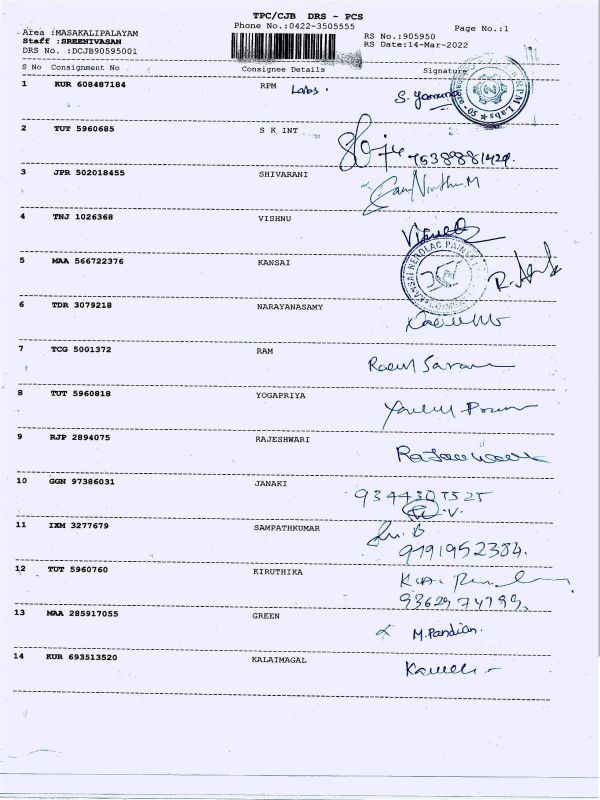 TPC/CJB DRS - PCS
Phone No.:0422-3505555
Page No.:1
Area :MASAKALIPALAYAM
Staff :SREENIVASAN
DRS No. :DCJB90595001
RS No.:905950
RS Date:14-Mar-2022
S No Consignment No Consignee Details Signature
1 KUR 608487184 RPM Labs. S. Yamuna
RPM Labs
2 TUT 5960685 S K INT
7538881429.
3 JPR 502018455 SHIVARANI
4 TNJ 1026368 VISHNU
5 MAA 566722376 KANSAI
KANSAI NEROLAC PAINTS
6 TDR 3079218 NARAYANASAMY
7 TCG 5001372 RAM
8 TUT 5960818 YOGAPRIYA
9 RJP 2894075 RAJESHWARI
10 GGN 97386031 JANAKI
9344307525
11 IXM 3277679 SAMPATHKUMAR
9191952384.
12 TUT 5960760 KIRUTHIKA
13 MAA 285917055 GREEN M.Pandian.
14 KUR 693513520 KALAIMAGAL